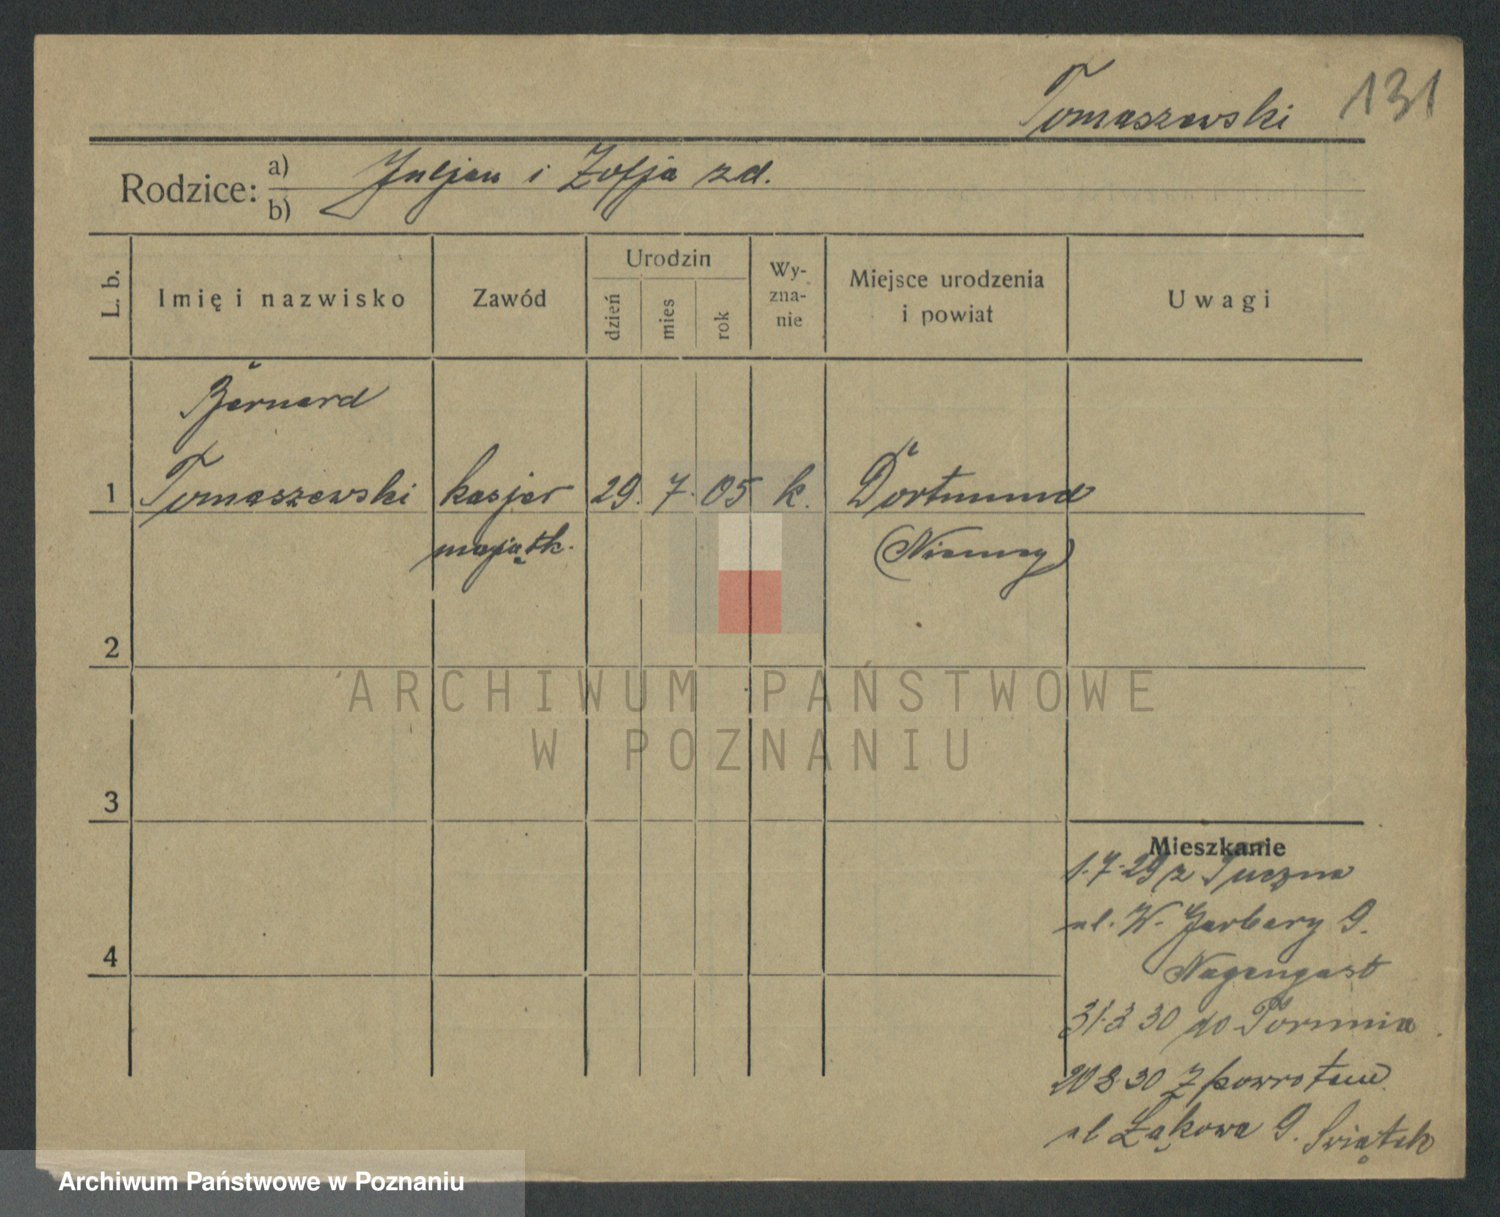 Tomaszewski 131
Rodzice: a) Juljan i Zofja zd.
b)
L. b. Imię i nazwisko Zawód Urodzin dzień mies rok Wy-zna-nie Miejsce urodzenia i powiat Uwagi
Bernard
1 Tomaszewski kasjer 29. 7. 05 k. Dortmund
majątk. (Niemcy)
2
ARCHIWUM PAŃSTWOWE
W POZNANIU
3
Mieszkanie
1.7.29 z Tuczna
ul. W. Garbary 9.
4
Nagengast
31.3 30 do Torunia
20 8 30 Z powrotem
ul Łąkowa 9. Świątek
Archiwum Państwowe w Poznaniu